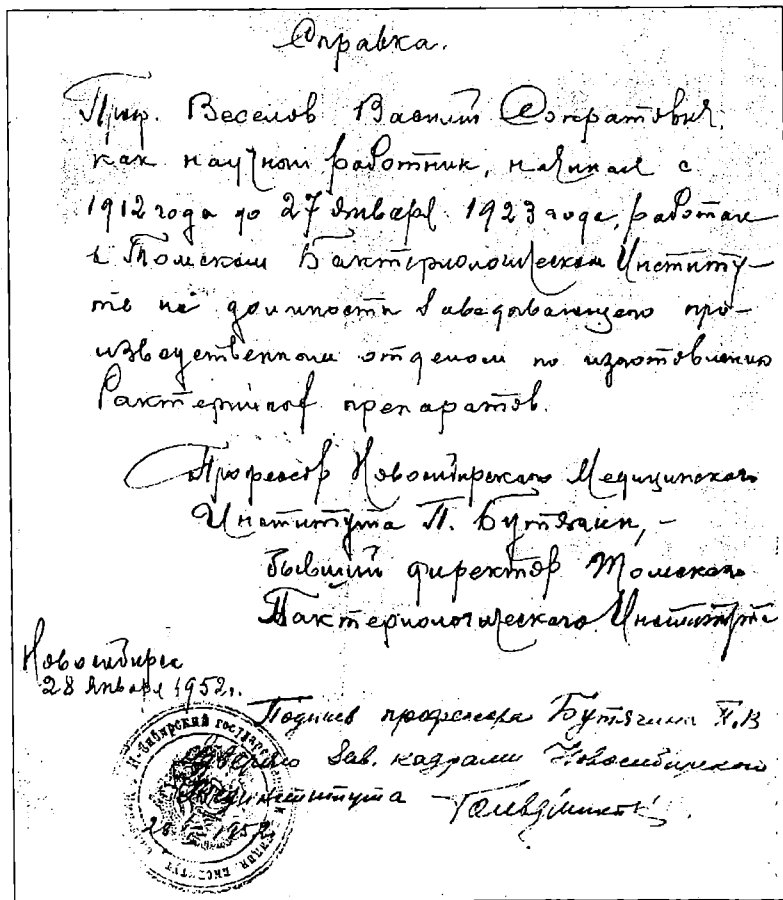 Справка.
Проф. Веселов Василий Сократович,
как научный работник, начиная с
1912 года до 27 января 1923 года, работал
в Томском Бактериологическом Институ-
те на должности Заведывающего про-
изводственным отделом по изготовлению
бактерийных препаратов.
Профессор Новосибирского Медицинского
Института П. Бутягин, -
бывший директор Томского
Бактериологического Института
Новосибирск
28 января 1952 г.
Подпись профессора Бутягина П.В
Зав. кадрами Новосибирского
Мединститута
28 1952